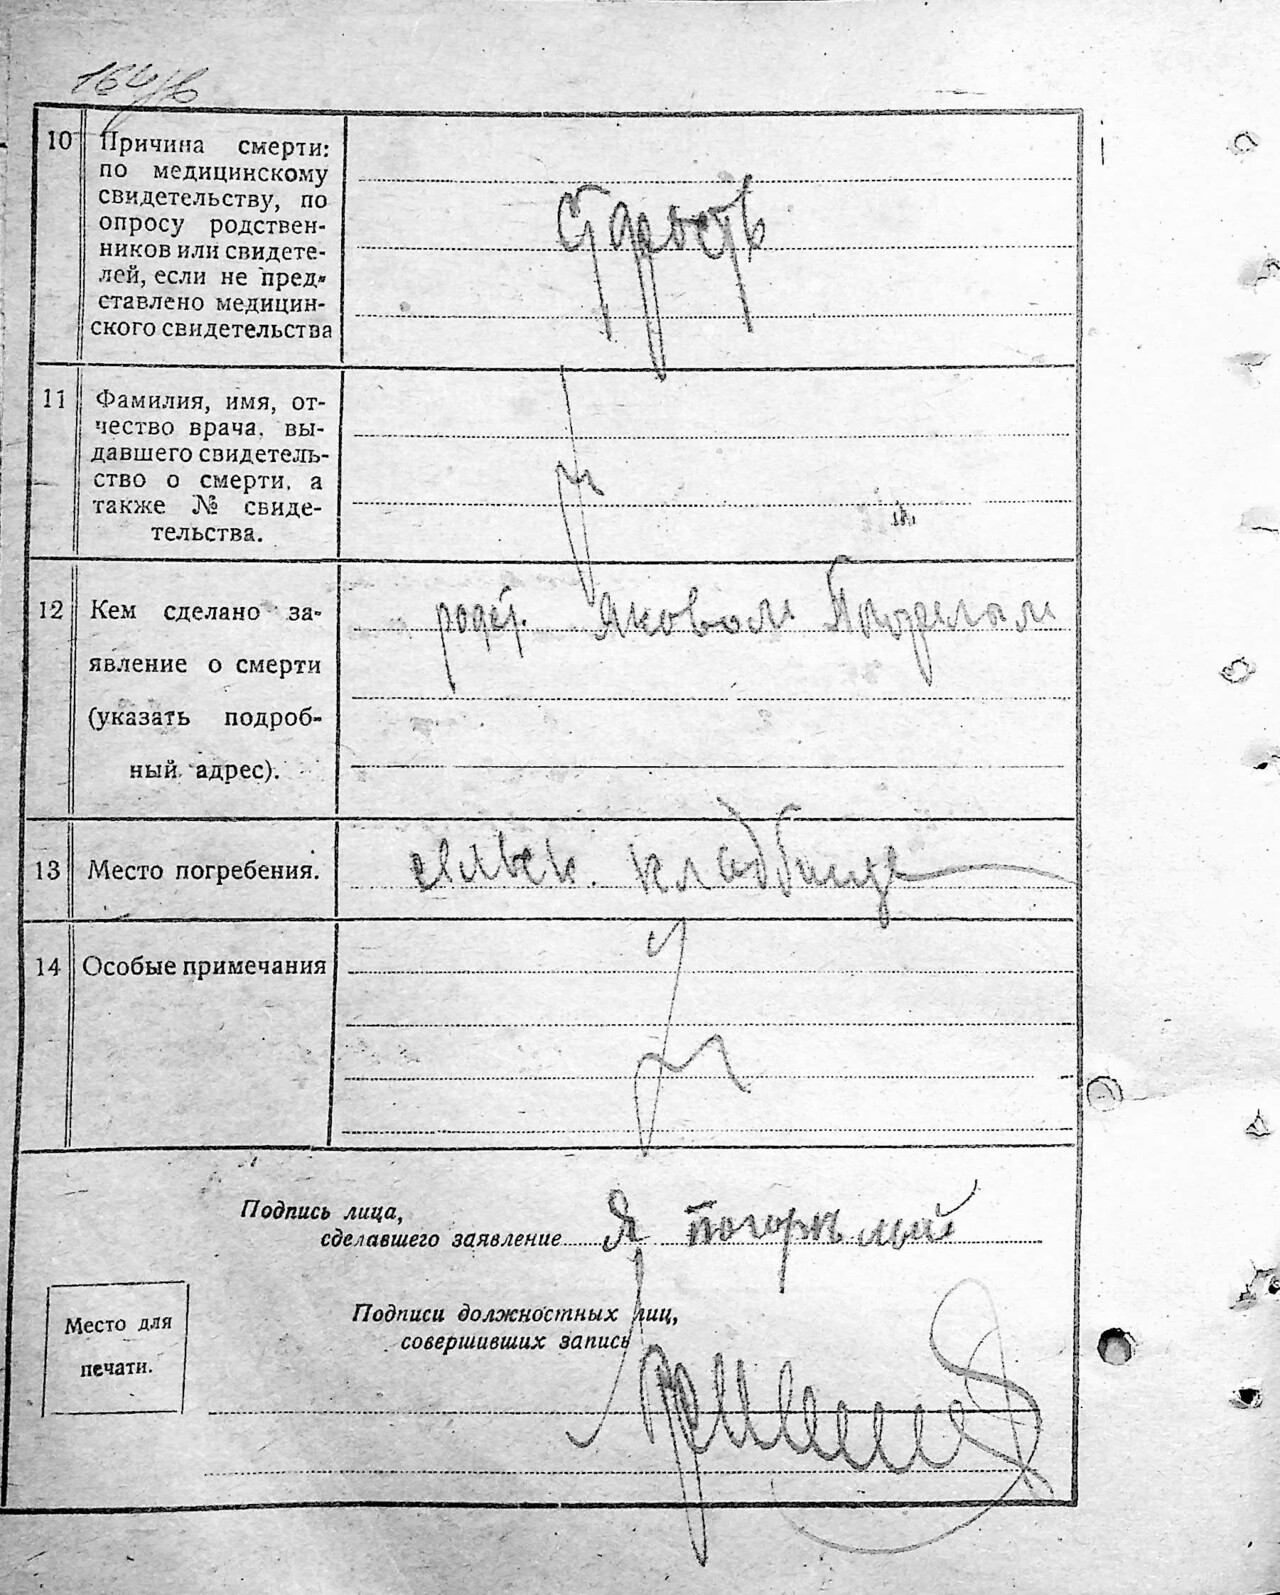 164/б
10 Причина смерти:
по медицинскому
свидетельству, по
опросу родствен-
ников или свидете-
лей, если не пред-
ставлено медицин-
ского свидетельства
старость
11 Фамилия, имя, от-
чество врача, вы-
давшего свидетель-
ство о смерти, а
также № свиде-
тельства.
12 Кем сделано за-
явление о смерти
(указать подроб-
ный адрес).
родст. Яковом
13 Место погребения.
сельск. кладбище
14 Особые примечания
Подпись лица,
сделавшего заявление Я Погорилый
Подписи должностных лиц,
совершивших запись
Место для
печати.